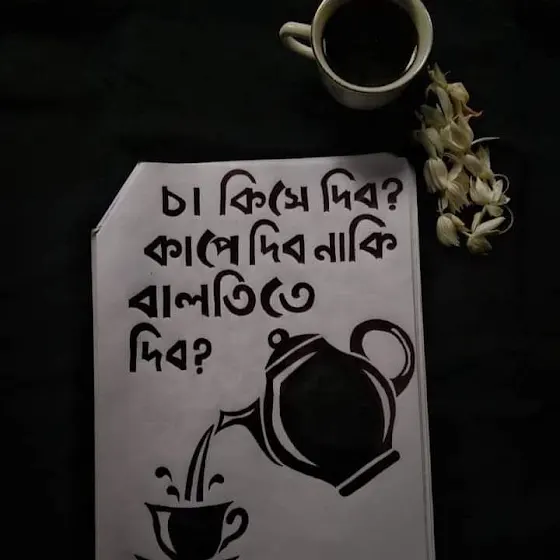 চা কিসে দিব?
কাপে দিব নাকি
বালতিতে
দিব?